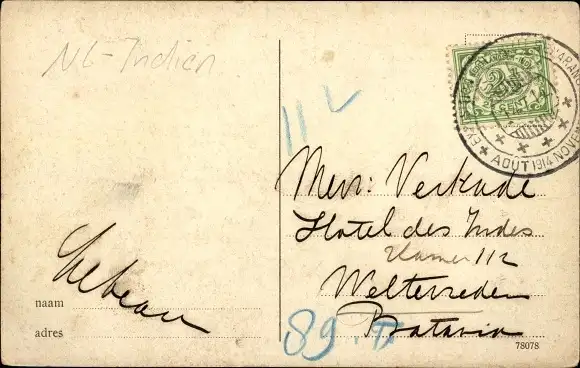 NL-Indien
112
Mevr: Verkade
Hotel des Indes
Kamer 112
Weltevreden
Batavia
Lebeau
naam
adres
89.
78078
2½
CENT
AOÛT 1914 NOV